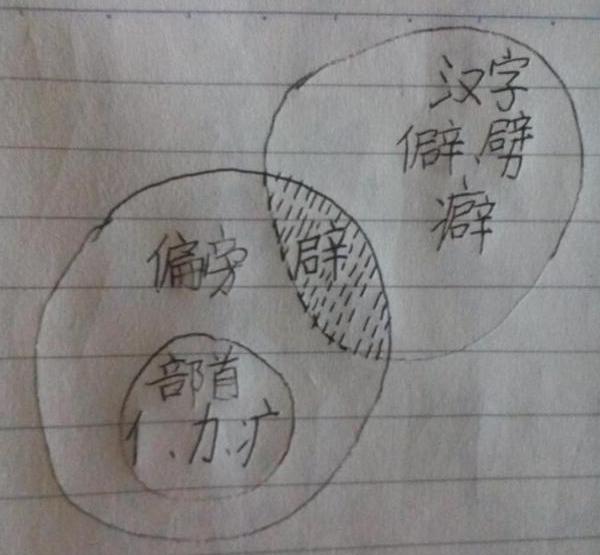 汉字
僻、劈
、癖
偏旁
辟
部首
亻、力、疒